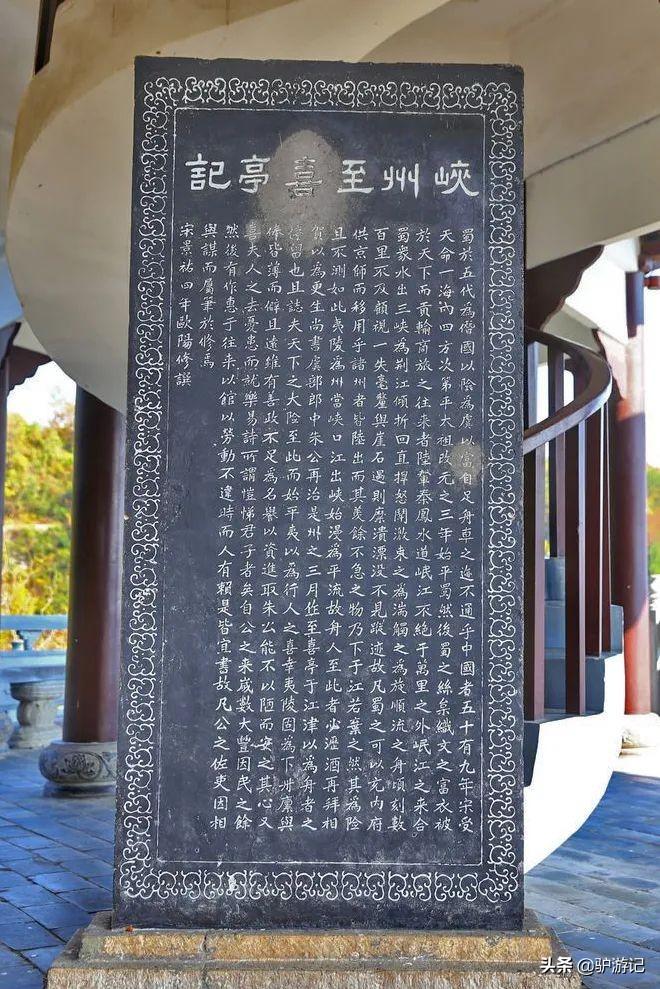 峽州至喜亭記
蜀於五代為僭國以險為虞以富自足舟車之迹不通乎中國者五十有九年宋受
天命一海内四方次第平太祖改元之三年始平蜀然後蜀之絲枲織文之富衣被
於天下而貢輸商旅之往來者陸輦秦鳳水道岷江不絕于萬里之外岷江之來合
蜀衆水出三峽為荆江傾折回直捍怒鬭激束之為湍觸之為旋順流之舟頃刻數
百里不及顧視一失毫釐與崖石遇則糜潰漂没不見蹤迹故凡蜀之可以充内府
供京師而移用乎諸州者皆陸出而其羨餘不急之物乃下于江若棄之然其為險
且不測如此夷陵為州當峽口江出峽始漫為平流故舟人至此者必瀝酒再拜相
賀以為更生尚書虞部郎中朱公再治是州之三月作至喜亭于江津以為舟者之
停留也且誌夫天下之大險至此而始平夷以為行人之喜幸夷陵固為下州廩與
俸皆薄而僻且遠雖有善政不足為名譽以資進取朱公能不以陋而安之其心又
喜夫人之去憂患而就樂易詩所謂愷悌君子者矣自公之來歲數大豐因民之餘
然後有作惠于往來以館以勞動不違時而人有賴是皆宜書故凡公之佐吏因相
與謀而屬筆於修焉
宋景祐四年歐陽修撰
头条 @驴游记